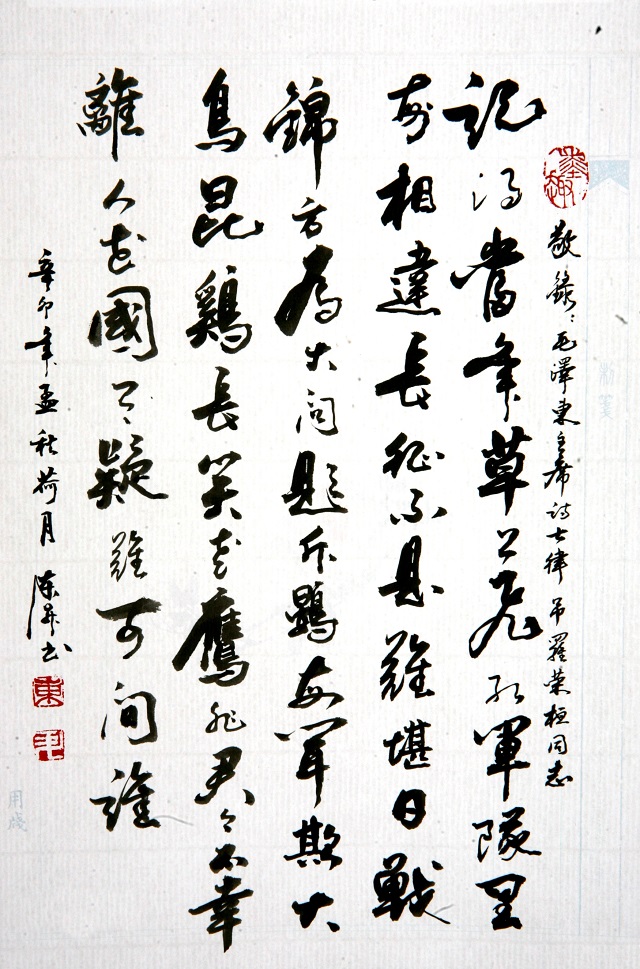 敬錄：毛澤東主席詩七律 吊羅榮桓同志
記得當年草上飛紅軍隊里
每相違長征不是難堪日戰
錦方為大问題斥鷃每聞欺大
鳥昆鷄長笑老鷹非君今不幸
離人世國有疑難可问誰
辛卯年孟秋荷月 书